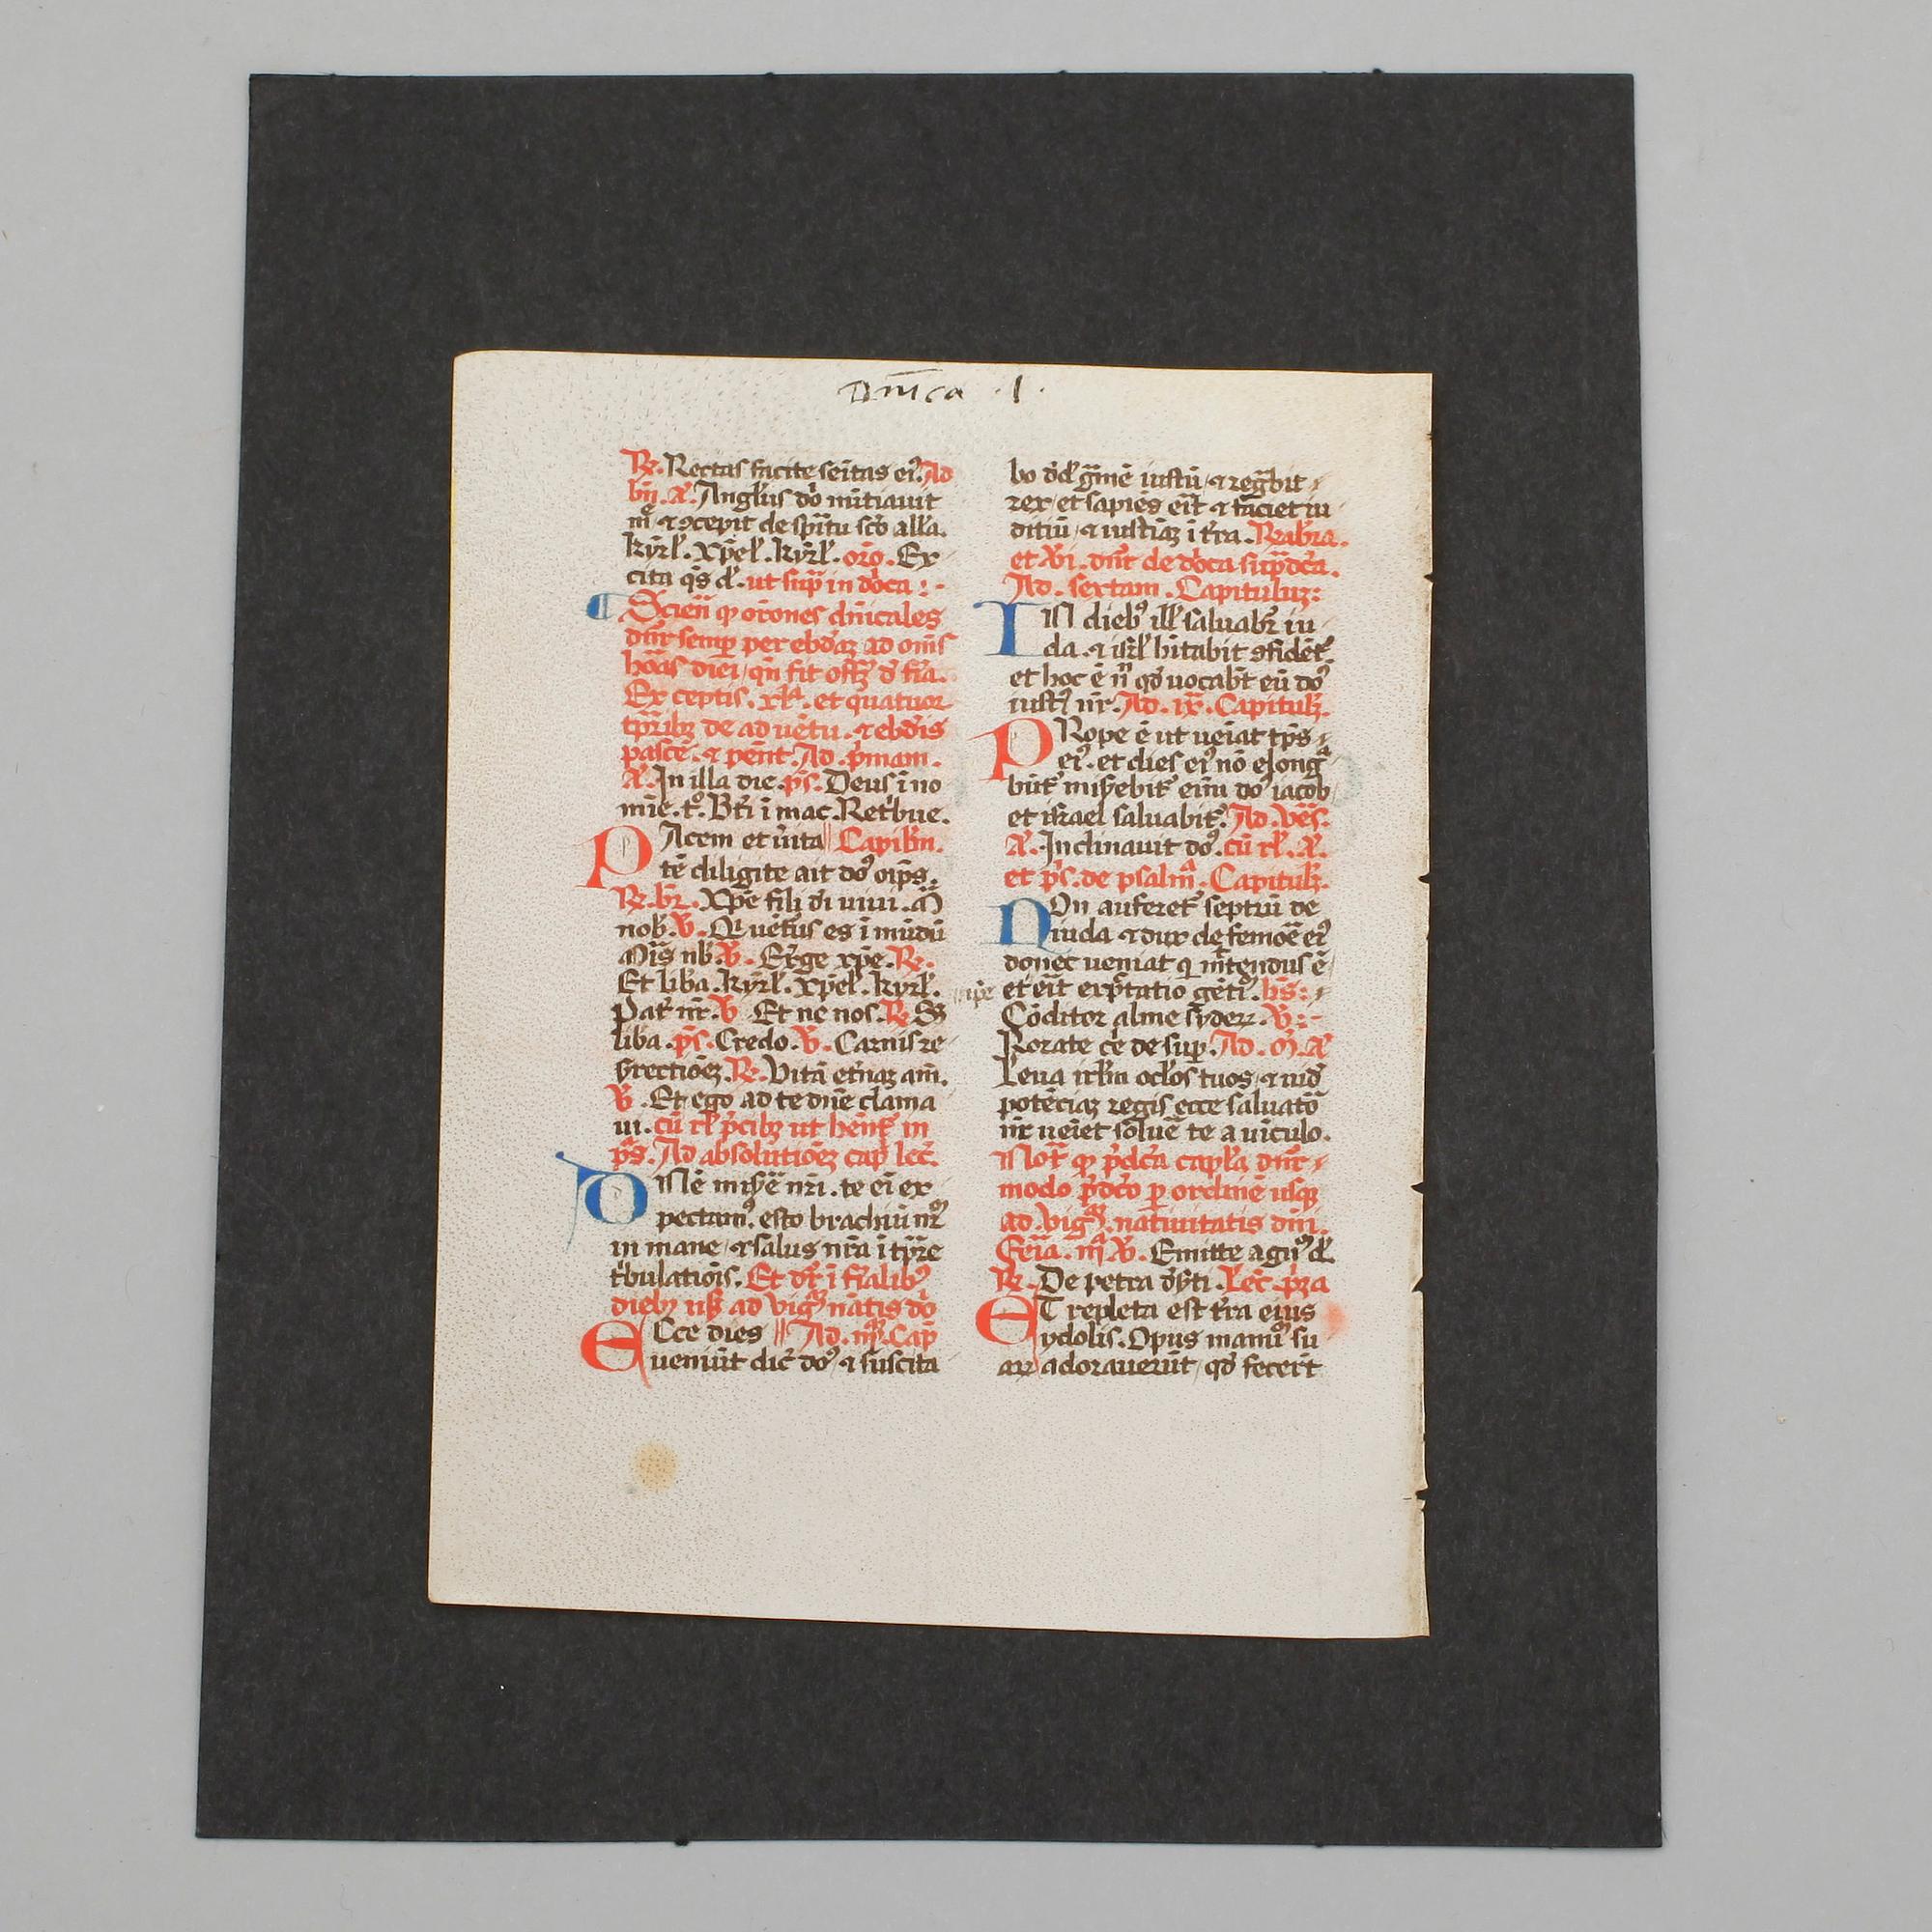 Dn̄ica · I ·
R̄. Rectas facite semitas ei᷒. Ad
bn̄. A᷒. Angelus dn̄i nūtiauit
m̄e ⁊ ɔcepit de spū scō all'a.
kyrł. xp̄eł. kyrł. orō. Ex
cita q̄s d̄. ut sup̄ in dōca :·
¶ Scien̄ ꝙ orōnes dn̄icales
dn̄r semꝑ per ebdaꝫ ad om̄s
horas diei / qn̄ fit offꝫ d̄ fīa.
Exceptis. xlª. et quatuor
tp̄ribꝫ de aduētu. ⁊ ebdīs
pasce. ⁊ pent̄. Ad. p̄mam.
A᷒. In illa die. p̄s. Deus ī no
mīe. t᷒. Bt̄i īmac. Ret̓bue.
PAcem et ūita || Capitłm.
tē diligite ait do᷒ oīps.
R̄. br̄. Xp̄e fili di uiui. M̄
nob̄. V̄. Qui uēt̓us es ī mūdū
Mis̄ nb̄. V̄. Exurge xp̄e. R̄.
Et lib̓a. kyrł. xp̄eł. kyrł.
Pat̓ nr̄. V̄. Et ne nos. R̄. Sꝫ
lib̓a. p̄s. Credo. V̄. Carnis re
surrectiōeꝫ. R̄. Vitā et̓naꝫ am̄.
V̄. Et ego ad te dn̄e clama
ui. cū rł p̄cibꝫ ut hēnt᷒ in
p̄s. Ad absolutiōeꝫ cap̄ lec̄.
DNē mis̓ē nr̄i. te ei ex
pectam᷒. esto brachiū nr̄
in mane / ⁊ salus nr̄a ī tp̄re
t̓bulatiōis. Et dr̄ ī fīalib᷒
diebꝫ usꝫ ad vigª nātis dō
ECce dies || Ad. iijª. Cap̄
ueniūt dic̄ do᷒ ⁊ suscita
bo dd̄ gm̄ē iustū / ⁊ regn̄bit
rex / et sapiēs erit ⁊ faciet iu
ditiū / ⁊ iustiaꝫ ī t̓ra. R̄abr̄ia.
et V̄i. dn̄r de dōca sup̄dc̄a.
Ad. sextam. Capituluꝫ:
IN dieb᷒ illꝭ saluabr̄ iu
da. ⁊ isrł hītabit ɔfidēt᷒.
et hoc ē nn̄ qd̄ uocabt̄ eū do᷒
iust᷒ nr̄. Ad. ix̄. Capituł.
PRope ē ut ueiat tp̄s
ei᷒. et dies ei᷒ nō elongª
būt᷒ mis̓ebit᷒ eim do᷒ iacob
et israel saluabit᷒. Ad. ves̄.
A᷒. Inclinauit do᷒. cū rł. A᷒.
et p̄s. de psalm̄. Capituł.
NOn auferet᷒ septrū de
iuda ⁊ dux de femōe ei᷒
donec ueniat q̄ mit̄tendus ē
ip̄e et erit exp̄tatio gēti᷒. hs̄:
Cōditor alme syderꝝ. V̄:·
Rorate cē de sup̄. Ad. M̄. A᷒
Leua ier̄łm oc̄los tuos / ⁊ uid̄
potēciaꝫ regis ecce saluatō
nr̄ ueiet soluē te a uīculo.
Not̄ ꝙ p̄dc̄a capłª dn̄r
modo p̄dc̄o ꝑ ordinē usqꝫ
ad. vigª. natiuitatis dn̄i.
Feīa. ijª V̄. Emitte agn᷒ d̄.
R̄. De petra d̄s̓ti. Lec̄. p̄ª
ET repleta est t̓ra eius
ydolis. Opus manuū su
aꝝ adorauerūt / qd̄ fecert̄